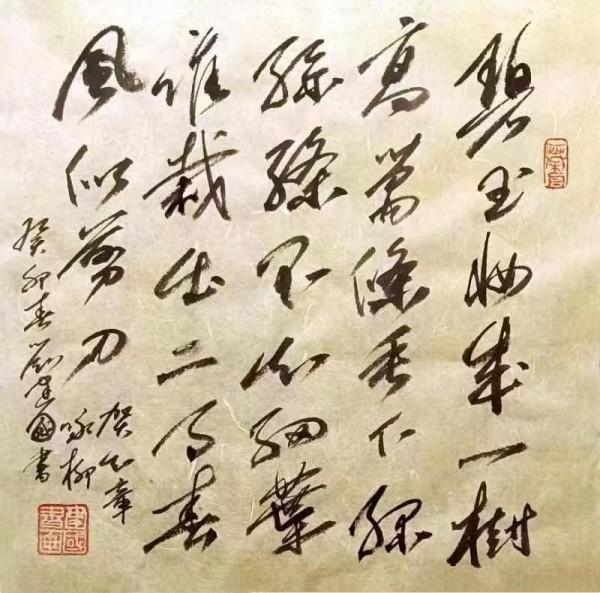 碧玉妝成一樹
高萬條垂下綠
絲縧不知細葉
誰裁出二月春
風似剪刀
賀知章
咏柳
癸卯春劉建國書